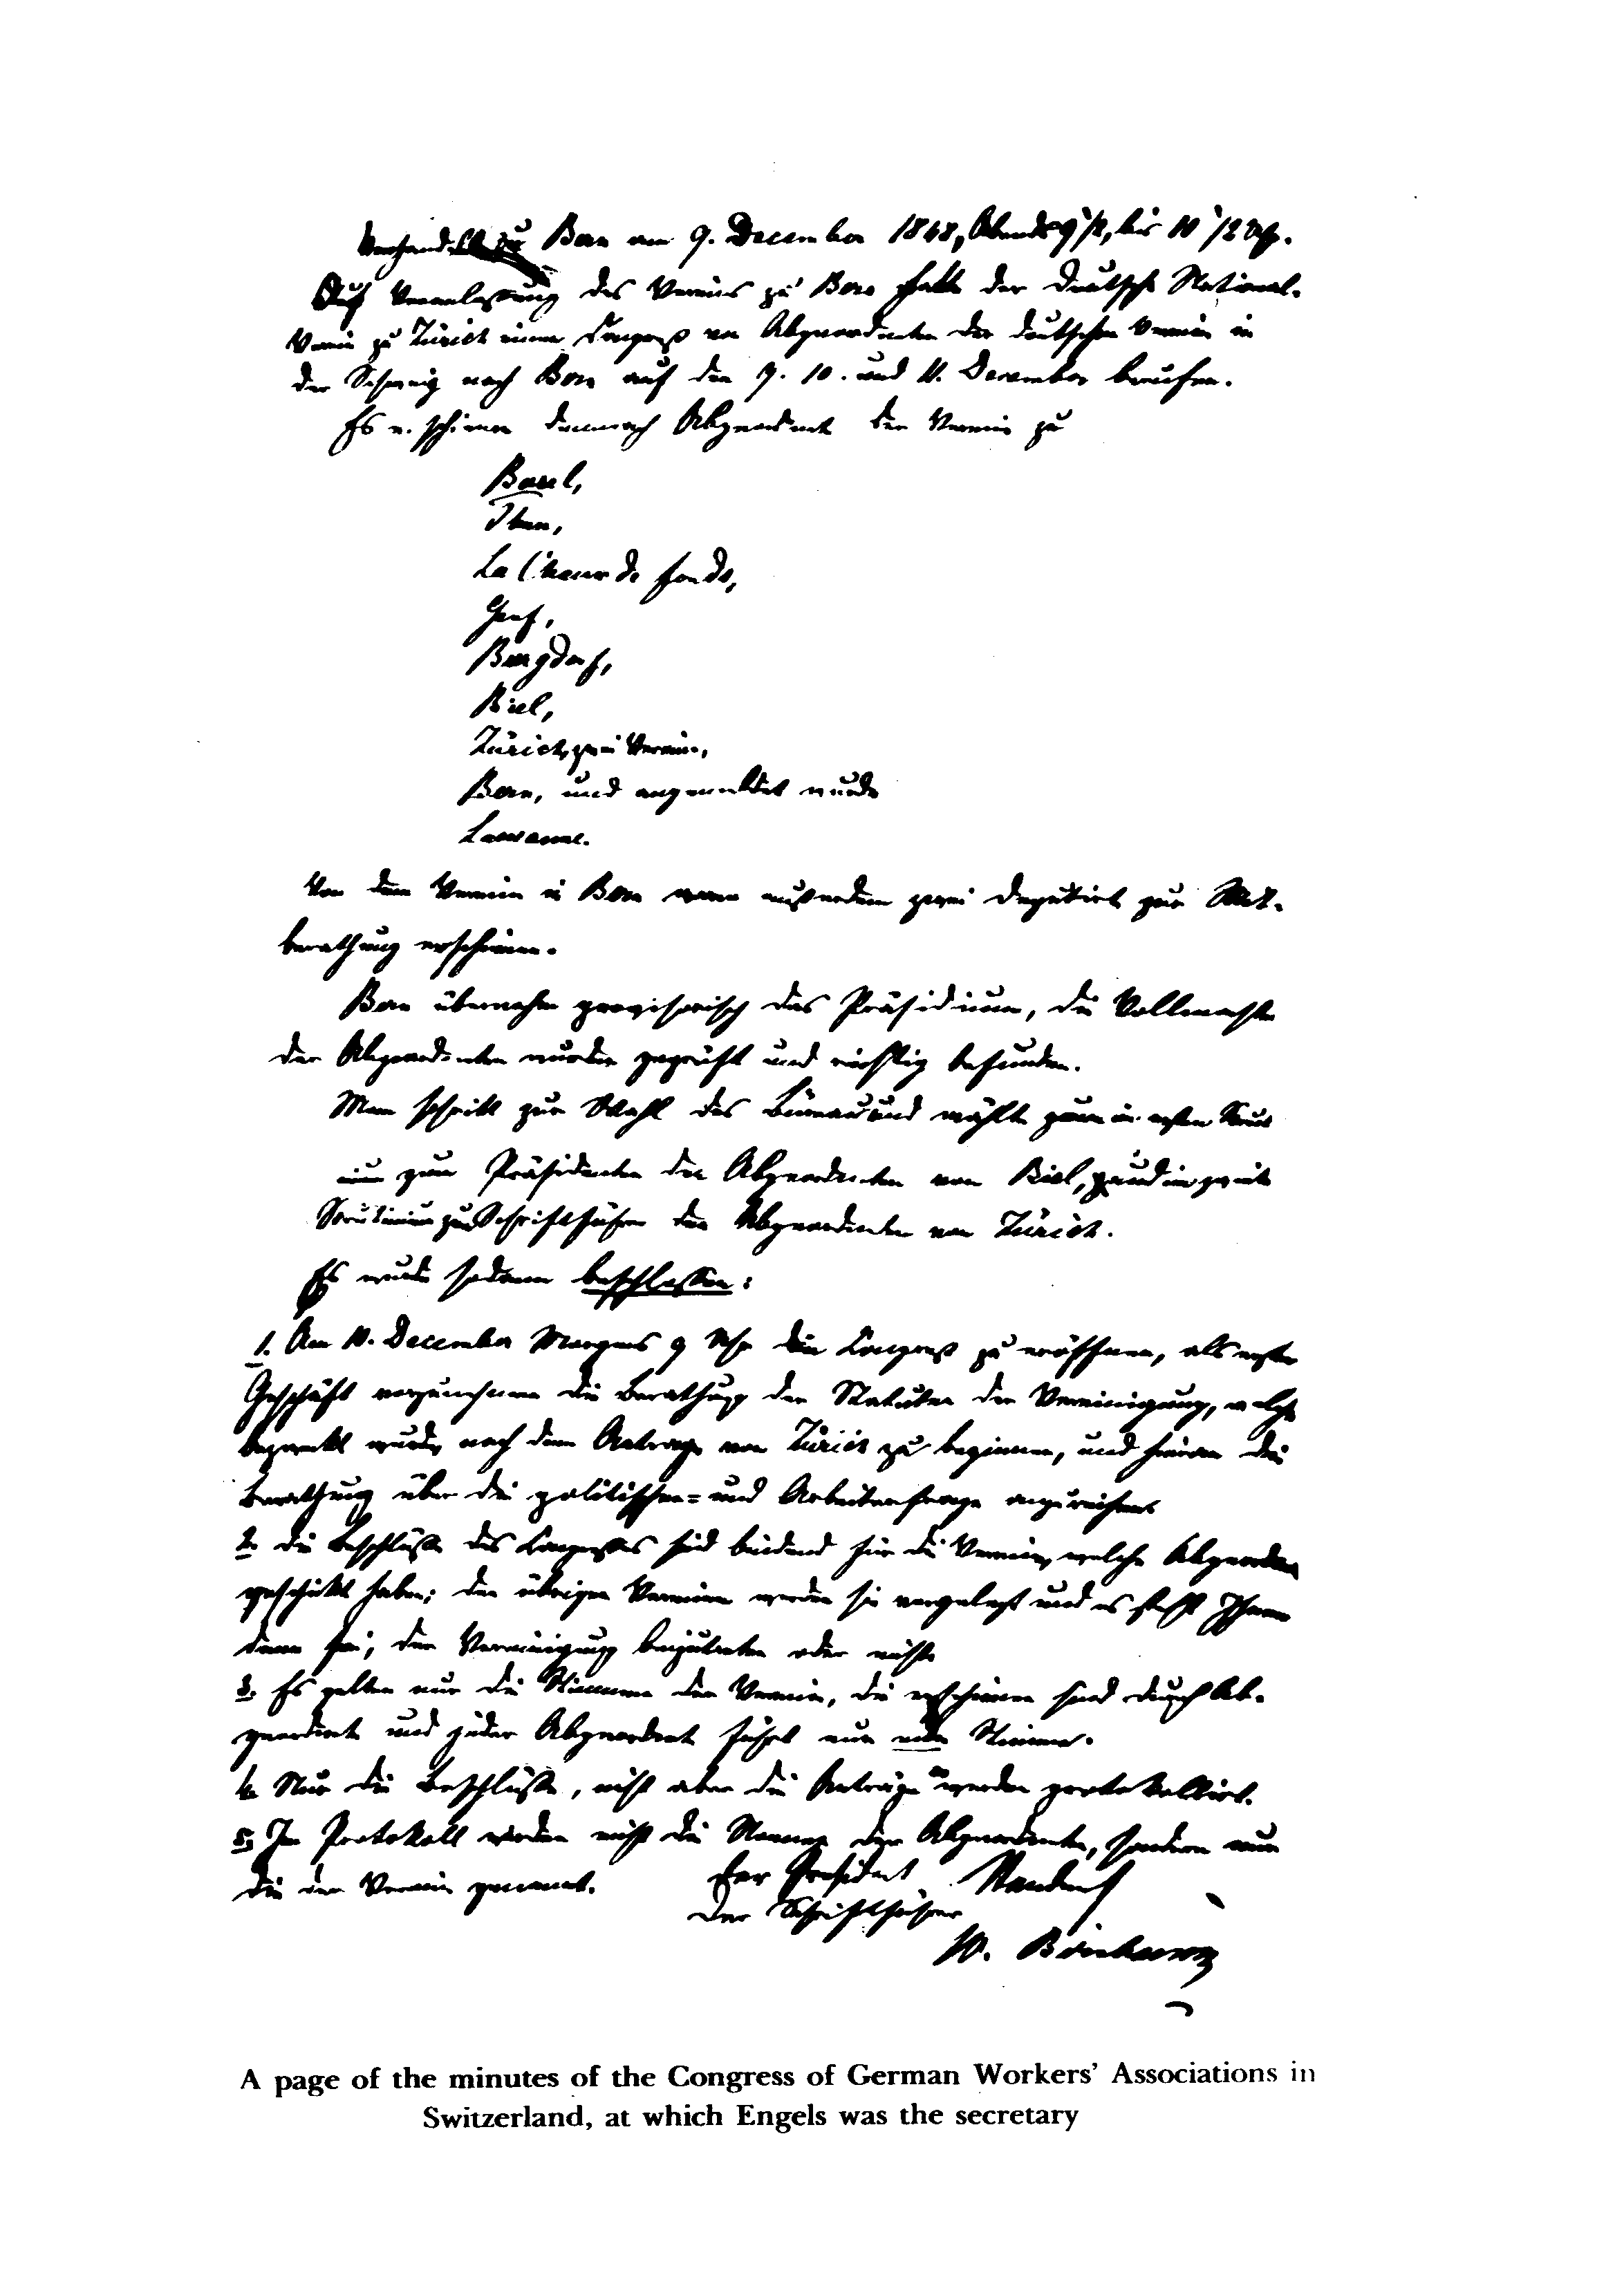 Verhandelt zu Bern am 9. December 1848, Abends 9 1/2, bis 10 1/2 Uhr.
Auf Veranlassung des Vereins zu Bern hatte der deutsche National-
Verein zu Zürich einen Congreß von Abgeordneten der deutschen Vereine in
der Schweiz nach Bern auf den 9. 10. und 11. December berufen.
Es erschienen demnach Abgeordnete der Vereine zu
Basel,
La Chaux de fonds,
Genf,
Burgdorf,
Biel,
Zürich, zwei Vereine,
Bern, und angemeldet wurde
Lausanne.
Von dem Vereine in Bern waren außerdem zwei Deputirte zur Mit-
berathung erschienen.
Bern übernahm provisorisch das Präsidium, die Vollmachten
der Abgeordneten wurden geprüft und richtig befunden.
Man schritt zur Wahl des Büreau und wählte im ersten
zum Präsidenten den Abgeordneten von Biel, und im zweiten
Scrutinium zum Schriftführer den Abgeordneten von Zürich.
Es wurde sodann beschlossen:
1. Am 10. December Morgens 9 Uhr den Congreß zu eröffnen, als erstes
Geschäft vorzunehmen die Berathung der Statuten der Vereinigung, welche
bezweckt wurde, nach dem Antrage von Zürich zu beginnen, und hieran die
Berathung über die politischen= und Arbeiterfrage anzureihen.
2. Die Beschlüsse des Congresses sind bindend für die Vereine, welche Abgeordnete
geschickt haben; den übrigen Vereinen werden sie vorgelegt und es steht Ihnen
dann frei, der Vereinigung beizutreten oder nicht.
3. Es gelten nur die Stimmen der Vereine, die erschienen sind durch Ab-
geordnete und jeder Abgeordnete führt nur eine Stimme.
4. Nur die Beschlüsse, nicht aber die Anträge werden protokollirt.
5. Im Protokoll werden nicht die Namen der Abgeordneten, sondern nur
die der Vereine genannt.
Der Präsident
Der Schriftführer
A page of the minutes of the Congress of German Workers' Associations in
Switzerland, at which Engels was the secretary